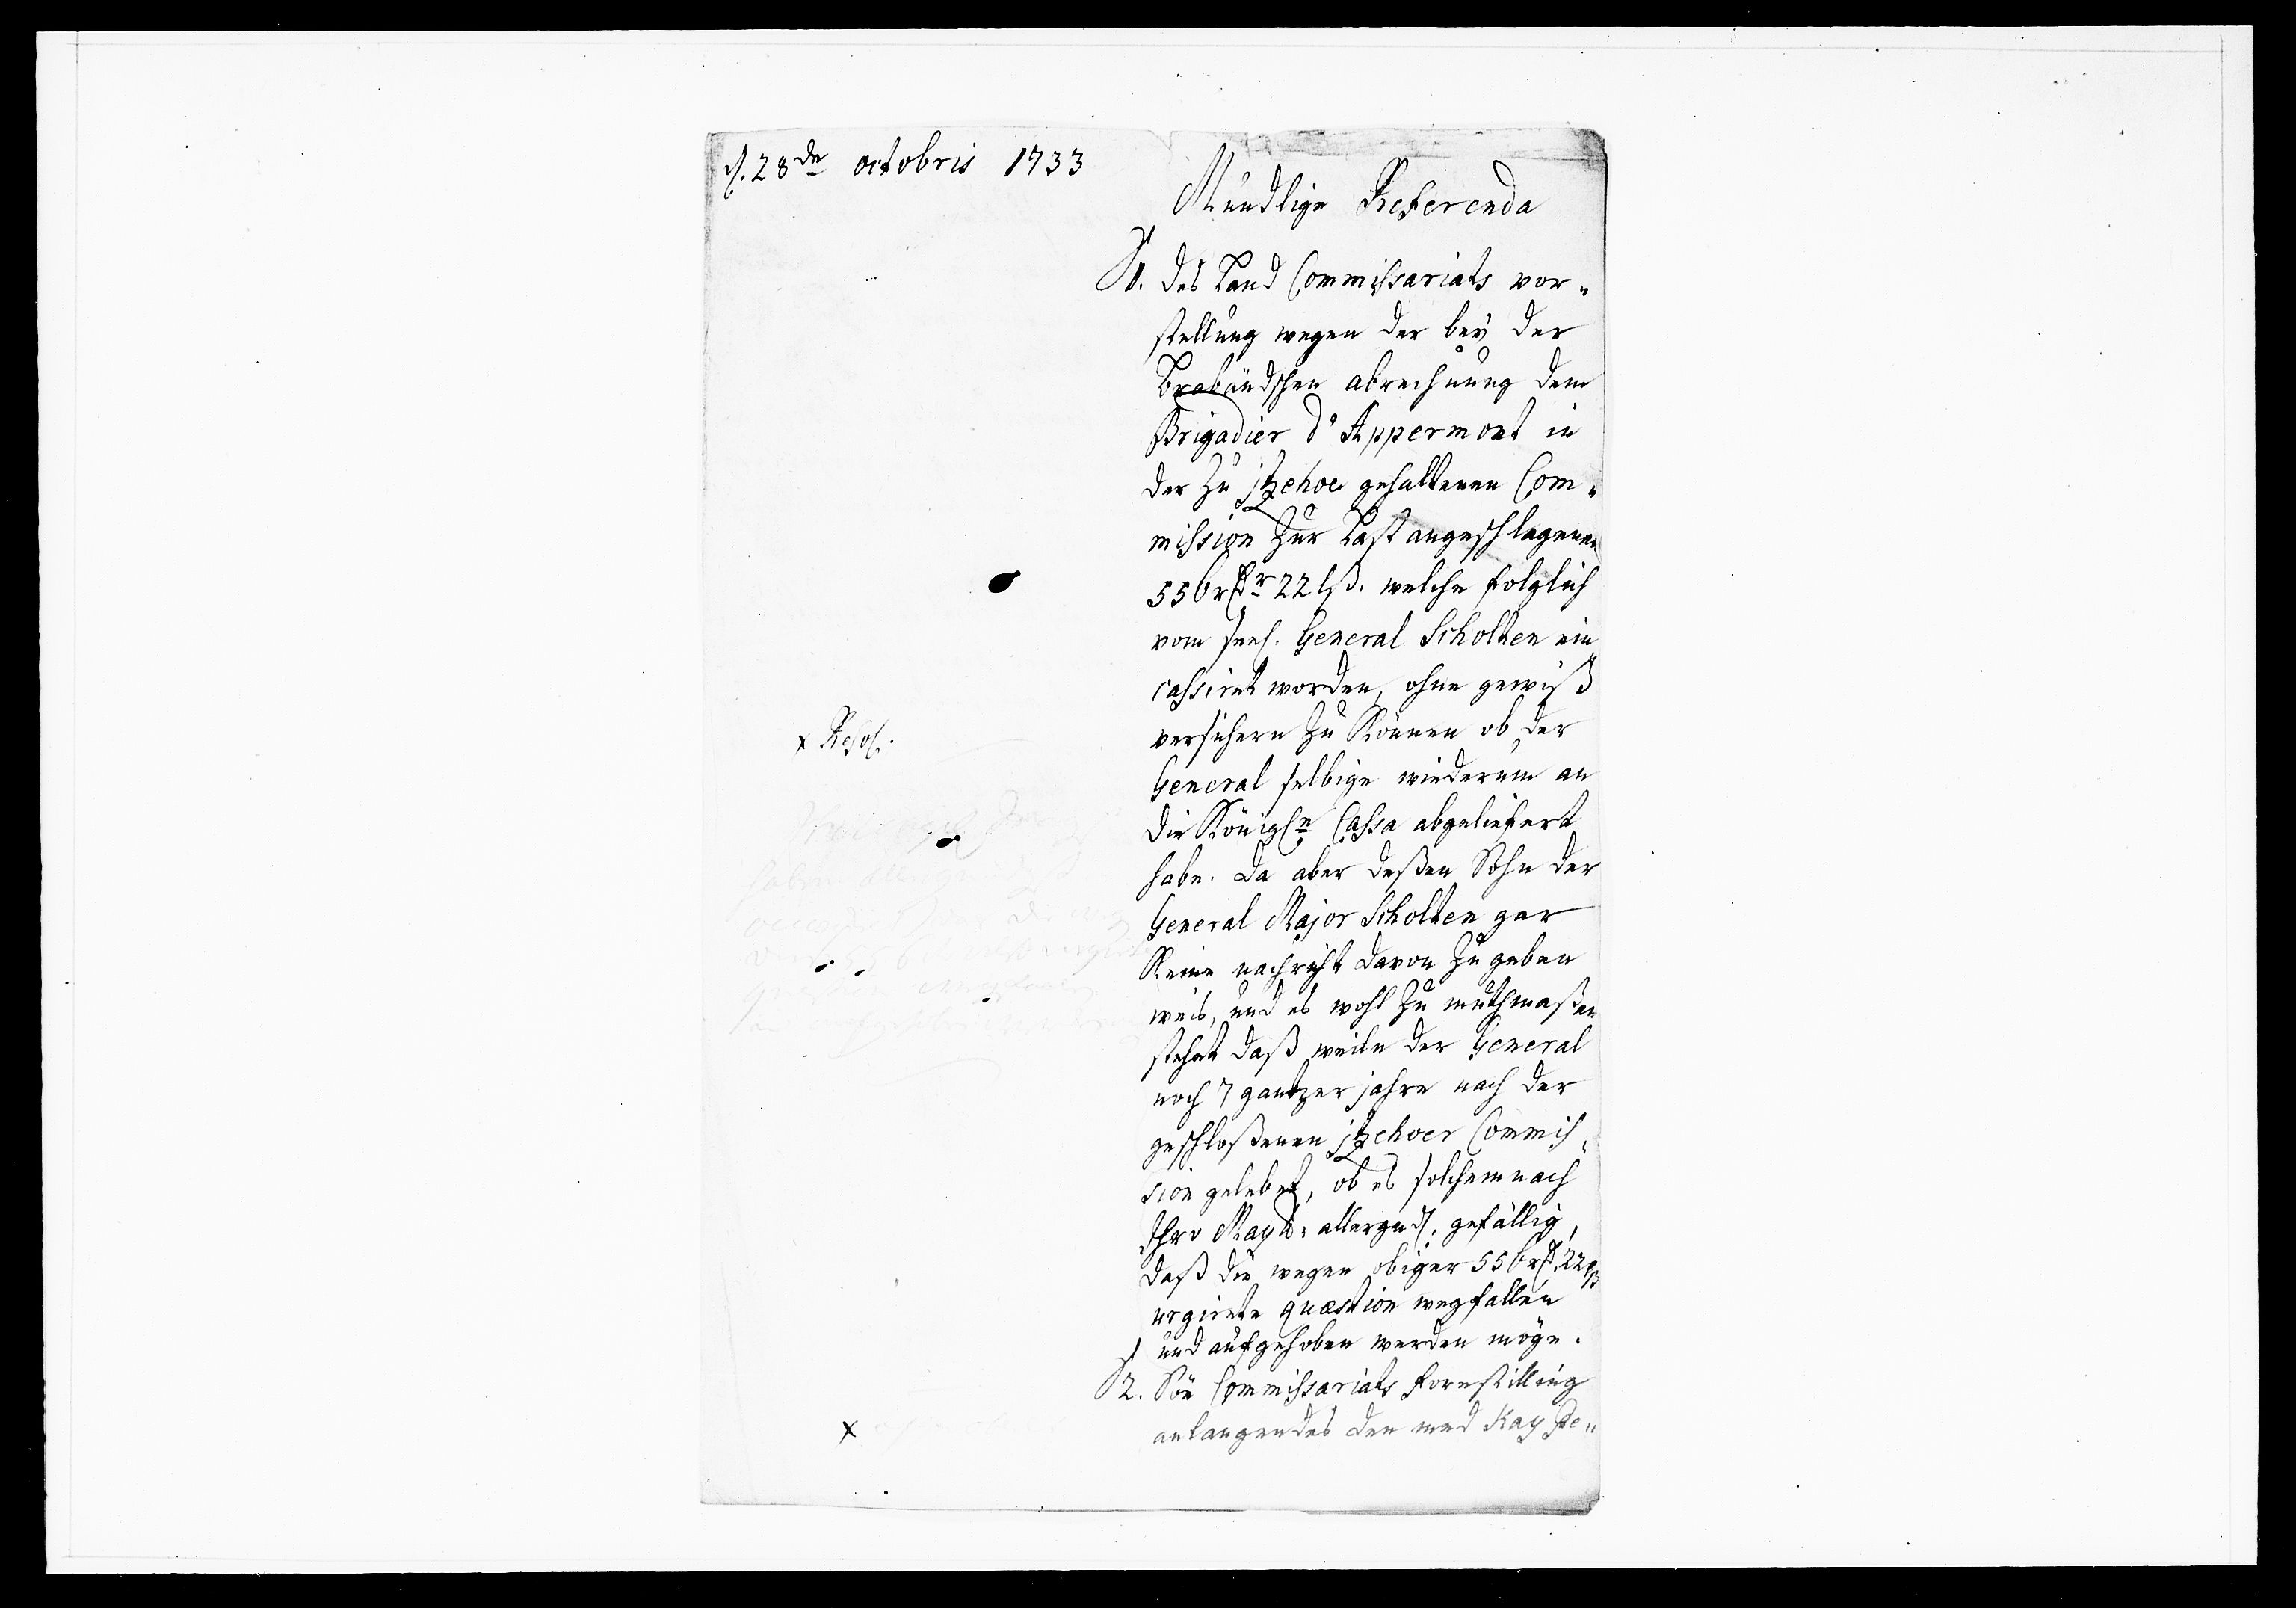 d. 28de octobris 1733
Mundlige Referenda
§1. des Land Commissariats vor-
stellung wegen der beÿ der
Brabandschen abrechnung dem
Brigadier d'Appermont in
der zu jtzehoe gehaltenen Com-
mission zur Last angeschlagenen
556 rdr 22 lß. welche folglich
vom seel. General Scholten ein
cassiret worden, ohne gewiß
versichern zu können ob der
General selbige wiederum an
die Königln Cassa abgeliefert
habe. da aber deßen Sohn der
General Major Scholten gar
Keine nachricht davon zu geben
weis, und es wohl zu muthmaßen
stehet daß weile der General
noch 7 gantzer jahre nach der
geschloßenen jtzehoer Commis-
sion gelebet, ob es solchemnach
Ihro Maytt: allergndl. gefällig,
daß die wegen obiger 556 rd. 22 lß
urgirete quæstion wegfallen
und aufgehoben werden möge.
§2. Söe Commissariats forestilling
anlangendes den med Kay Pe-
x Resol.
x